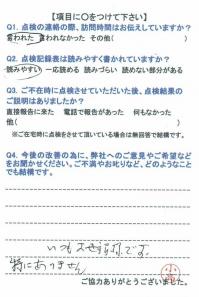 【項目に○をつけて下さい】
Q1. 点検の連絡の際、訪問時間はお伝えしていますか?
言われた 言われなかった その他( )
Q2. 点検記録表は読みやすく書かれていますか?
読みやすい 一応読める 読みづらい 読めない部分がある
Q3. ご不在時に点検させていただいた後、点検結果の
ご説明はありましたか?
直接報告に来た 電話で報告があった 何もなかった
他( )
※ご在宅時に点検をさせて頂いている場合は無回答で結構です。
Q4. 今後の改善の為に、弊社へのご意見やご希望などを
お聞かせください。ご不満やお叱りなど、どのようなこと
でも結構です。
いつも です。
特にありません
ご協力ありがとうございました。